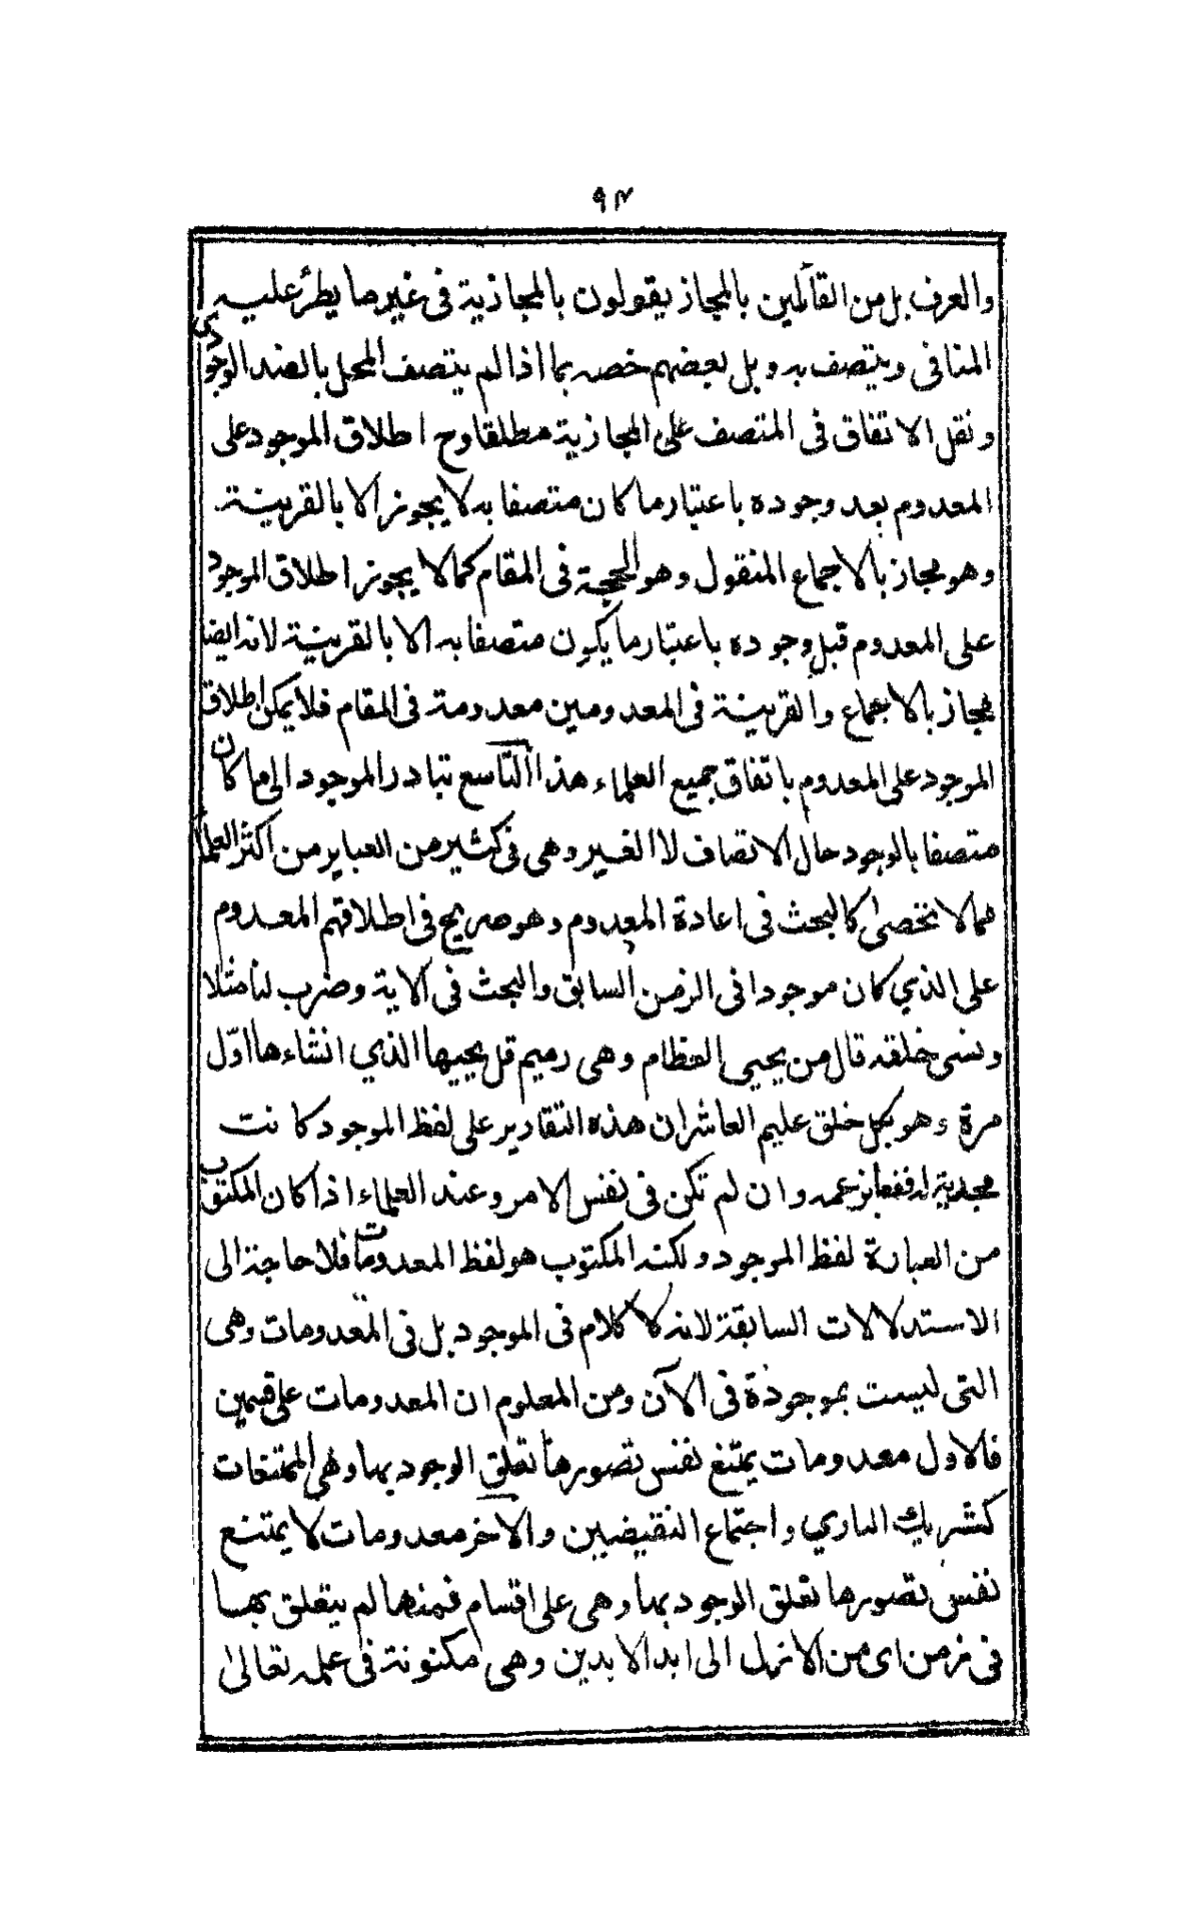 ٩٤
والعرف بل من القائلين بالمجاز يقولون بالمجازية فى غير ما يطرأ عليه
المنافى ويتصف به وبل بعضهم خصه بما اذا لم يتصف المحل بالضد الوجودى
ونقل الاتفاق فى المتصف على المجازية مطلقا وح اطلاق الموجود على
المعدوم بعد وجوده باعتبار ما كان متصفا به لا يجوز الا بالقرينة
وهو مجاز بالاجماع المنقول وهو الحجة فى المقام كما لا يجوز اطلاق الموجود
على المعدوم قبل وجوده باعتبار ما يكون متصفا به الا بالقرينة لانه ايضا
مجاز بالاجماع والقرينة فى المعدومين معدومة فى المقام فلا يمكن اطلاق
الموجود على المعدوم باتفاق جميع العلماء هذا التاسع تبادر الموجود الى ما كان
متصفا بالوجود حال الاتصاف لا الغير وهى فى كثير من العباير من اكثر العلما
مما لا تخصى كالبحث فى اعادة المعدوم وهو صريح فى اطلاقهم المعدوم
على الذي كان موجودا فى الزمن السابق والبحث فى الاية وضرب لنا مثلا
ونسى خلقه قال من يحيى العظام وهى رميم قل يحييها الذي انشاءها اوّل
مرة وهو بكل خلق عليم العاشر ان هذه التقادير على لفظ الموجود كانت
مجدية له فى زعمه وان لم تكن فى نفس الامر وعند العلماء اذا كان المكتوب
من العبارة لفظ الموجود ولكنه المكتوب هو لفظ المعدومات فلا حاجة الى
الاستدلالات السابقة لانه لا كلام فى الموجود بل فى المعدومات وهى
التى ليست بموجودة فى الآن ومن المعلوم ان المعدومات على قسمين
فالاول معدومات يمتنع نفس تصورها تعلق الوجود بها وهى الممتنعات
كشريك الباري واجتماع النقيضين والآخر معدومات لا يمتنع
نفس تصورها تعلق الوجود بها وهى على اقسام فمنها لم يتعلق بها
فى زمن اى من الازل الى ابد الابدين وهى مكنونة فى علمه تعالى